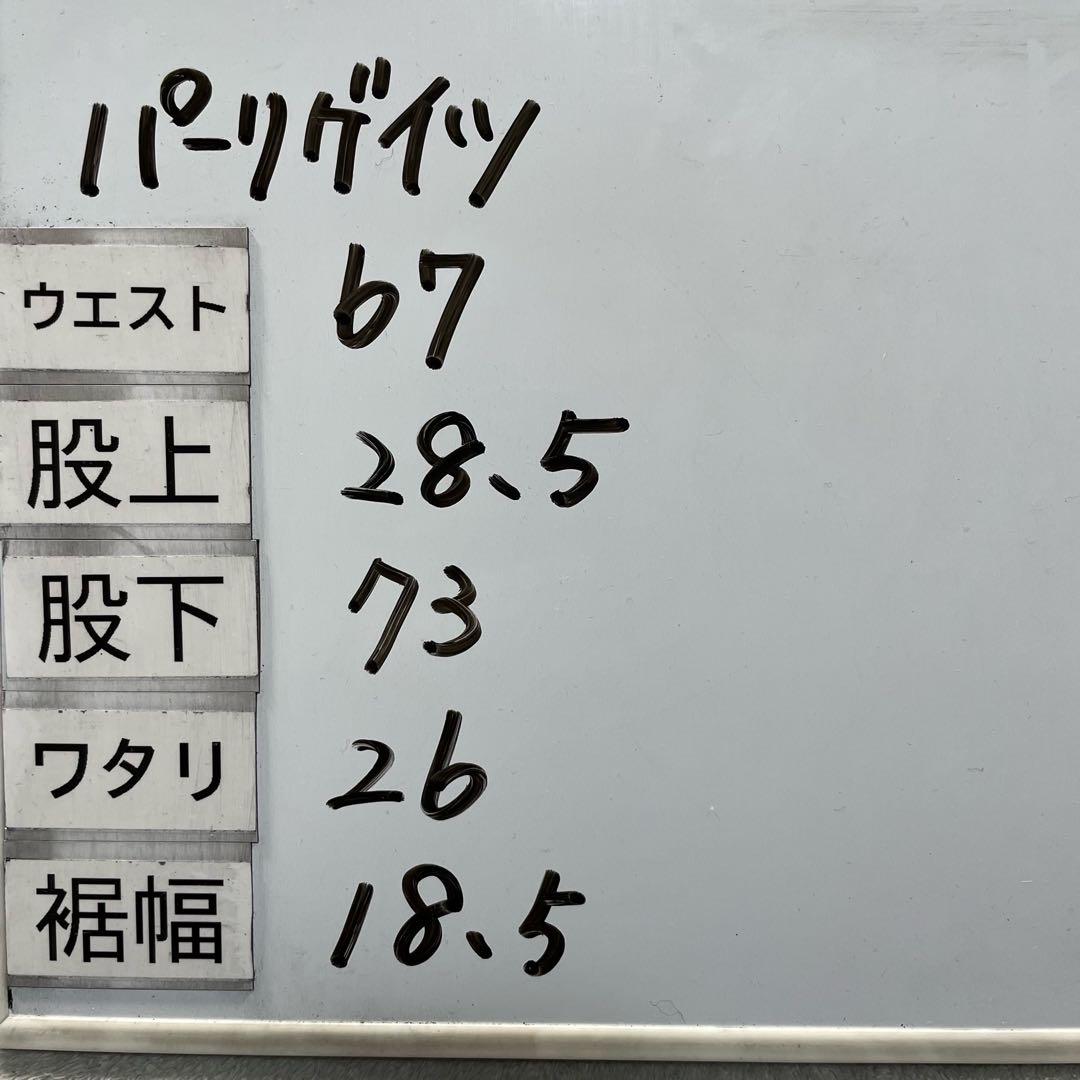 パーリゲイツ
ウエスト 67
股上 28.5
股下 73
ワタリ 26
裾幅 18.5